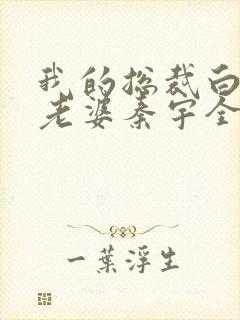 我的总裁白
老婆秦宇全
一葉浮生